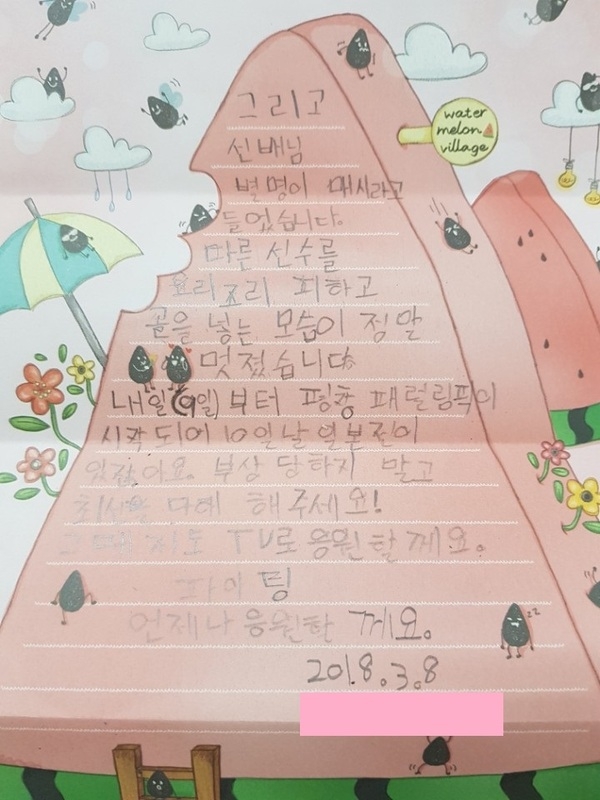 그리고
water
melon
village
선배님
별명이 메시라고
들었습니다.
마른 선수를
요리조리 피하고
골을 넣는 모습이 정말
멋졌습니다.
내일(9일)부터 평창 패럴림픽이
시작되어 10일날 일본전이
있잖아요. 부상 당하지 말고
최선을 다해 해주세요!
그때 저도 TV로 응원할께요.
파이팅
언제나 응원할 께요.
2018.3.8
zz